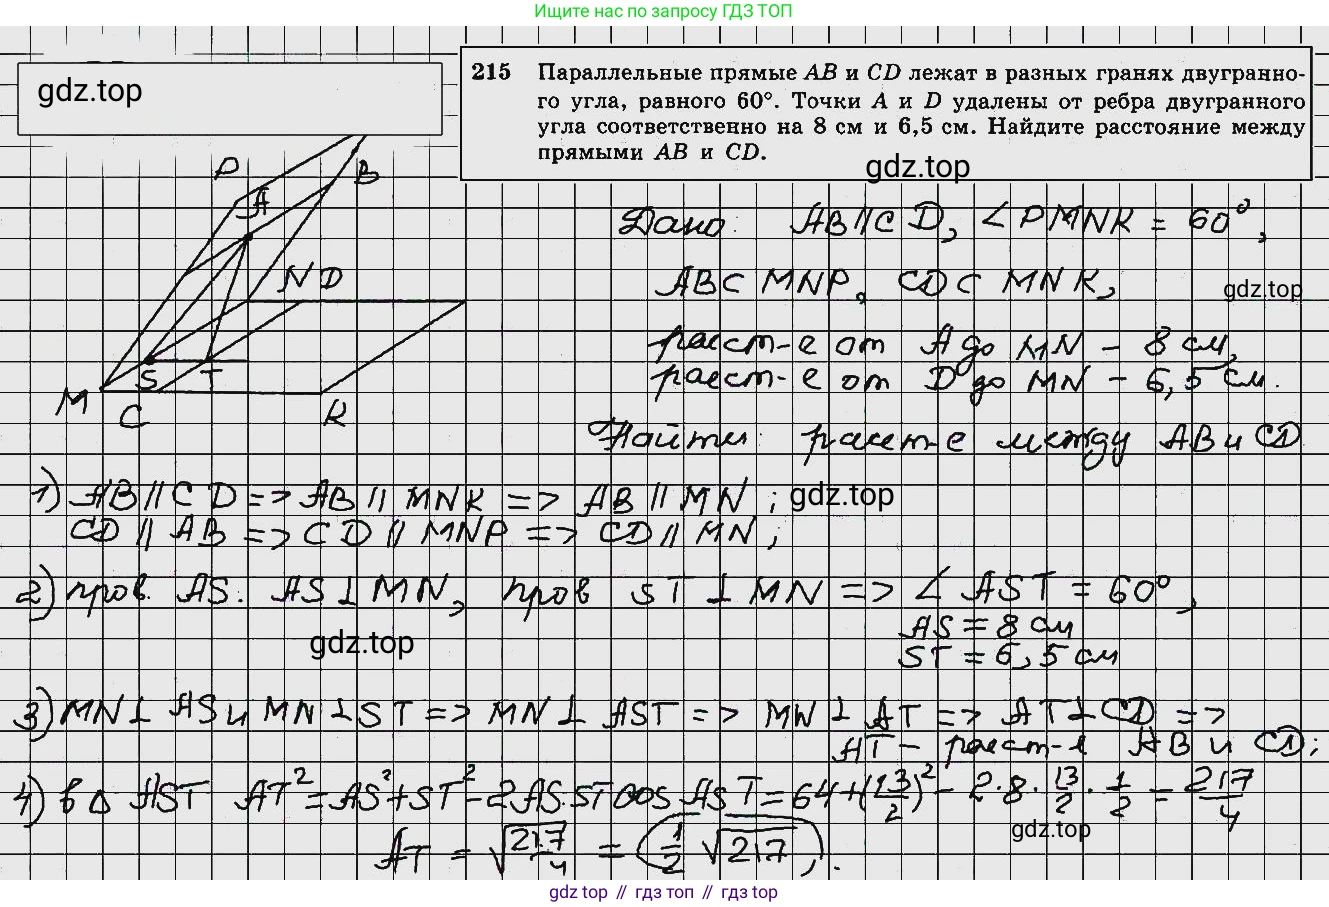 Ищите нас по запросу ГДЗ ТОП
gdz.top
215 Параллельные прямые AB и CD лежат в разных гранях двугранно-
го угла, равного 60°. Точки A и D удалены от ребра двугранного
угла соответственно на 8 см и 6,5 см. Найдите расстояние между
прямыми AB и CD.
gdz.top
P
A
B
N D
M
S
T
C
K
Дано: AB∥CD, ∠PMNK = 60°,
AB⊂MNP, CD⊂MNK,
gdz.top
расст-е от A до MN – 8 см,
расст-е от D до MN – 6,5 см.
Найти: расст-е между AB и CD
1) AB∥CD => AB∥MNK => AB∥MN;
gdz.top
CD∥AB => CD∥MNP => CD∥MN;
2) пров. AS: AS⊥MN, пров ST⊥MN => ∠AST = 60°,
AS = 8 см
gdz.top
ST = 6,5 см
3) MN⊥AS и MN⊥ST => MN⊥AST => MN⊥AT => AT⊥CD =>
AT – расст-е AB и CD;
4) в △AST AT² = AS² + ST² – 2AS·ST cos AST = 64 + (13/2)² – 2·8·13/2·1/2 = 217/4
gdz.top
AT = √217/4 = (1/2 √217).
gdz top // гдз топ // gdz top